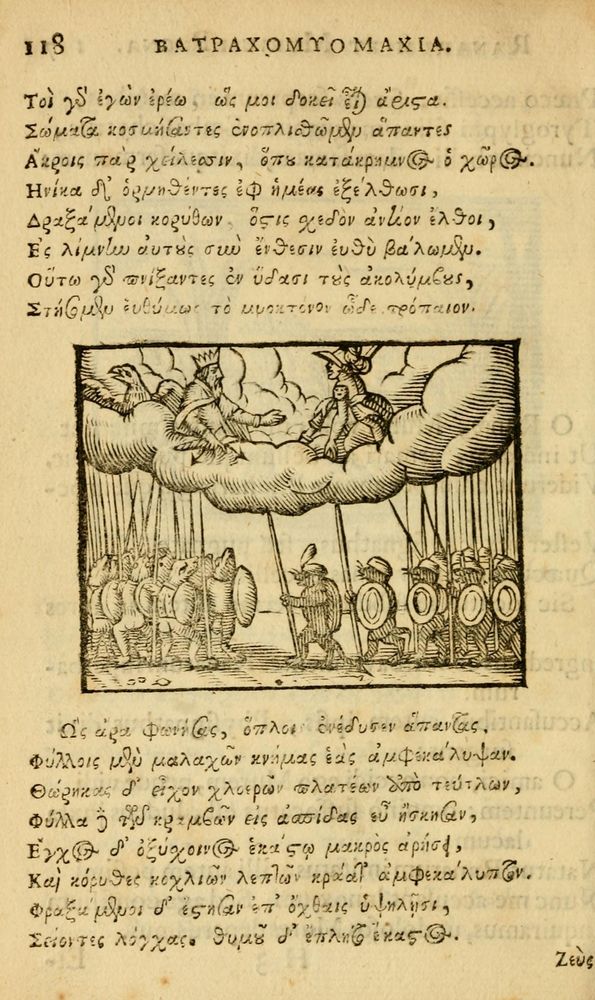 118 ΒΑΤΡΑΧΟΜΥΟΜΑΧΙΑ.
Τοὶ γδ ἐγὼν ἐρέω, ὥς μοι δοκεῖ εἶ) ἄριστα.
Σώματα κοσμήσαντες ἐνοπλισθῶμεν ἅπαντες
Ακροις πὰρ χείλεσσιν, ὅπου κατάκρημνος ὁ χῶρος.
Ηνίκα δ' ὁρμηθέντες ἐφ ἡμέας ἐξέλθωσι,
Δραξάμενοι κορύθων. ὅςτις σχεδὸν ἀντίον ἔλθοι,
Ες λίμνην αυτοὺς σὺν ἔνθεσιν ευθὺ βάλωμεν.
Οὕτω γδ πνίξαντες ἐν ὕδασι τοὺς ακολύμβους,
Στήσομεν ευθύμως τὸ μυοκτόνον ὧδε τρόπαιον.
Ως ἄρα φωνήσας, ὅπλοις ἐνέδυσεν ἅπαντας.
Φύλλοις μὲν μαλαχῶν κνήμας ἑὰς ἀμφεκάλυψαν.
Θώρηκας δ' εἶχον χλοερῶν πλατέων ἀπὸ τεύτλων,
Φύλλα ἢ τῶν κραμβῶν εἰς ἀσπίδας εὖ ἤσκησαν,
Εγχος δ' ὀξύσχοινος ἑκάστῳ μακρὸς ἀρήρει,
Καὶ κόρυθες κοχλιῶν λεπτῶν κράατ' ἀμφεκάλυπτον.
Φραξάμενοι δ' ἔστησαν ἐπ' ὄχθαις ὑψηλῇσι,
Σείοντες λόγχας. θυμοῦ δ' ἐπλητο ἕκαστος.
Ζεὺς